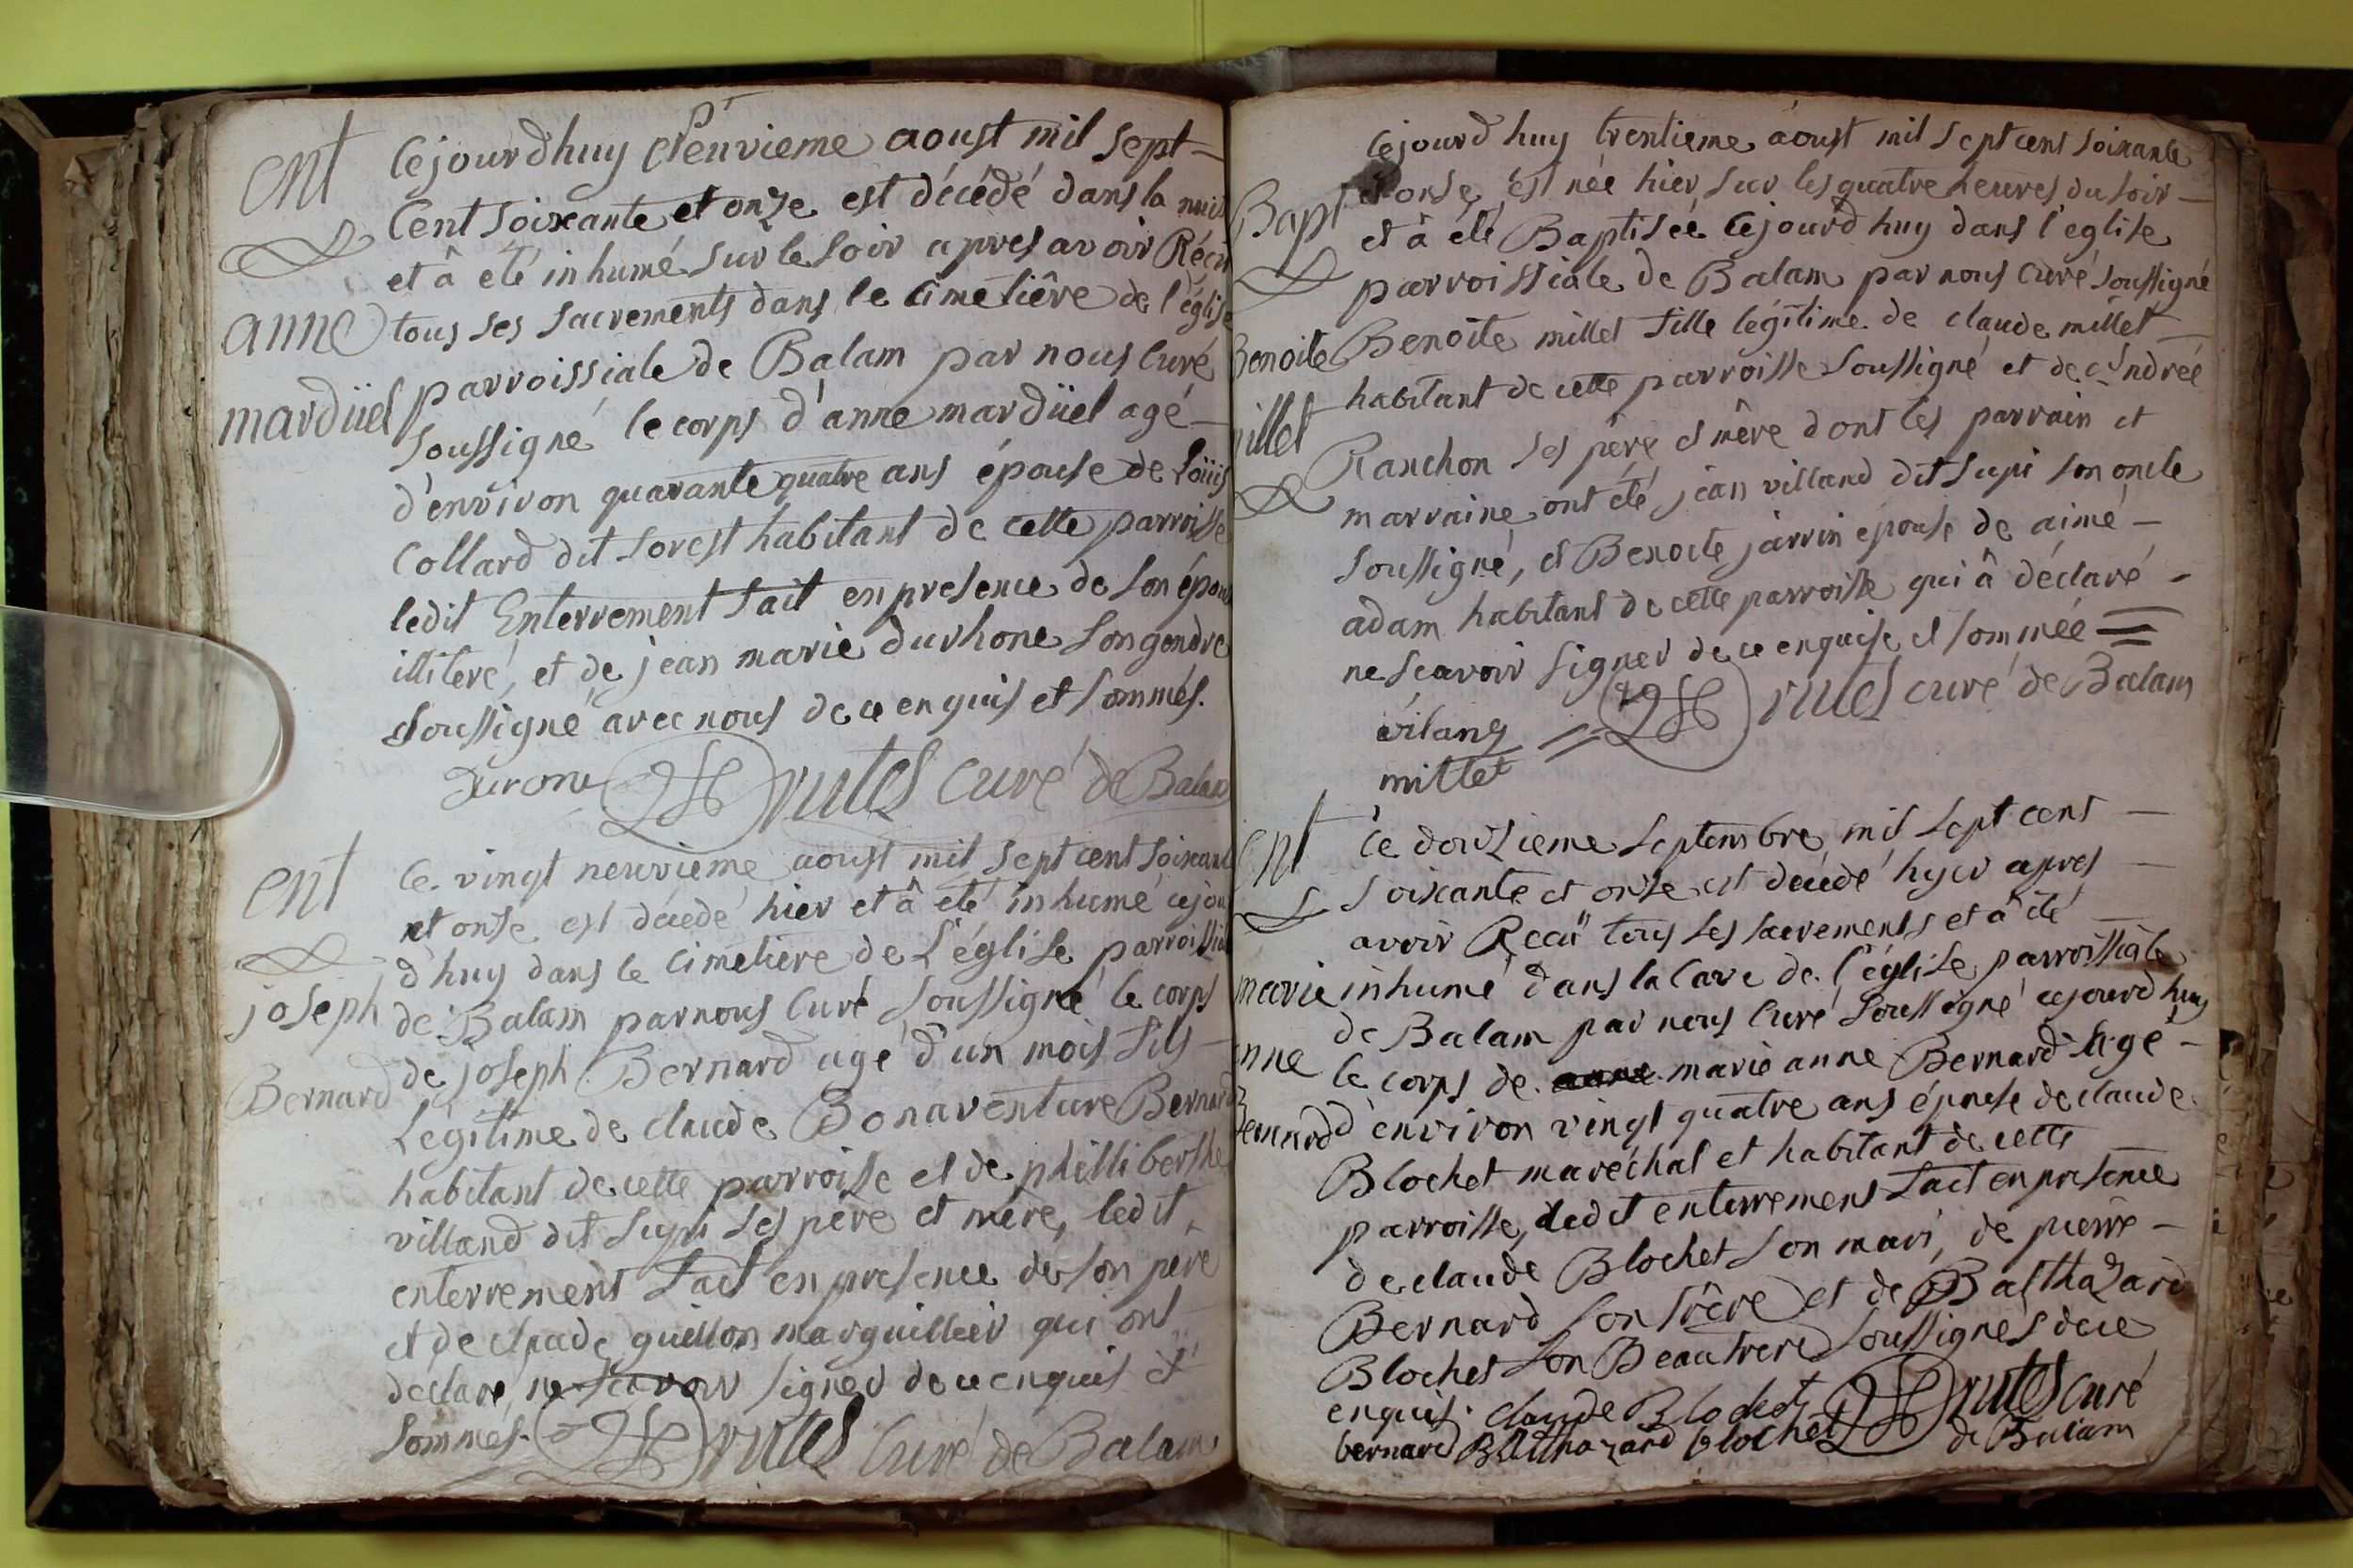 ent
anne
mardüel
Cejourdhuy Neuvieme aoust mil sept-
Cent soixante et onze est décédé dans la nuit
et â eté inhumé sur le soir apres avoir Récu
tous ses sacrements dans le cimetiêre de l'église
parroissiale de Balam par nous Curé
soussigné le corps d'anne mardüel agé-
d'environ quarante quatre ans épouse de Loüis
Collard dit forest habitant de cette parroisse
ledit Enterrement fait en presence de son époux
illiteré, et de jean marie durhone son gendre
soussigné avec nous de ce enquis et sommés.
Durone Brutes Curé de Balam
ent
joseph
Bernard
Ce vingt neuvieme aoust mil sept cent soixante
et onse est décédé hier et â eté inhumé cejour
d'huy dans le cimetiere de L'église parroissiale
de Balam par nous Curé soussigné le corps
de joseph Bernard agé d'un mois fils
Légitime de claude Bonaventure Bernard
habitant de cette parroisse et de philliberthe
villand dit supi ses pere et mere, ledit
enterrement fait en presence de son pere
et de claude guillon marguillier qui ont
declaré ne scavoir signer de ce enquis et
sommés. Brutes Curé de Balam
Bapt
Benoite
millet
Cejourd'huy trentieme aoust mil sept cent soixante
et onse, est née hier, sur les quatre heures du soir-
et â été Baptiseé cejourd'huy dans l'eglise
parroissiale de Balam par nous Curé soussigné
Benoite millet fille légitime de claude millet-
habitant de cette parroisse soussigné et de Andreé
Ranchon ses pêre et mêre dont les parrain et
marraine ont été jean villand dit supi son oncle
soussigné, et Benoite jarrin épouse de aimé-
adam habitans de cette parroisse qui â déclaré-
ne scavoir signer de ce enquise et sommeé=
vilang Brutes curé de Balam
millet
ent
marie
anne
Bernard
Ce douzieme septembre mil sept cens-
soixante et onse est décedé hyer apres-
avoir Recü tous ses sacrements et â été
inhumé dans la Cave de l'église parroissiale
de Balam par nous Curé soussigné cejourd'huy
le corps de marie anne Bernard agé-
d'environ vingt quatre ans épouse de claude
Blochet maréchal et habitant de cette
parroisse, ledit enterrement fait en presence
de claude Blochet son mari, de pierre-
Bernard son frêre et de Balthazard
Blochet son Beaufrere soussignés de ce
enquis. claude Blochet Brutes curé
bernard Balthazard blochet de Balam